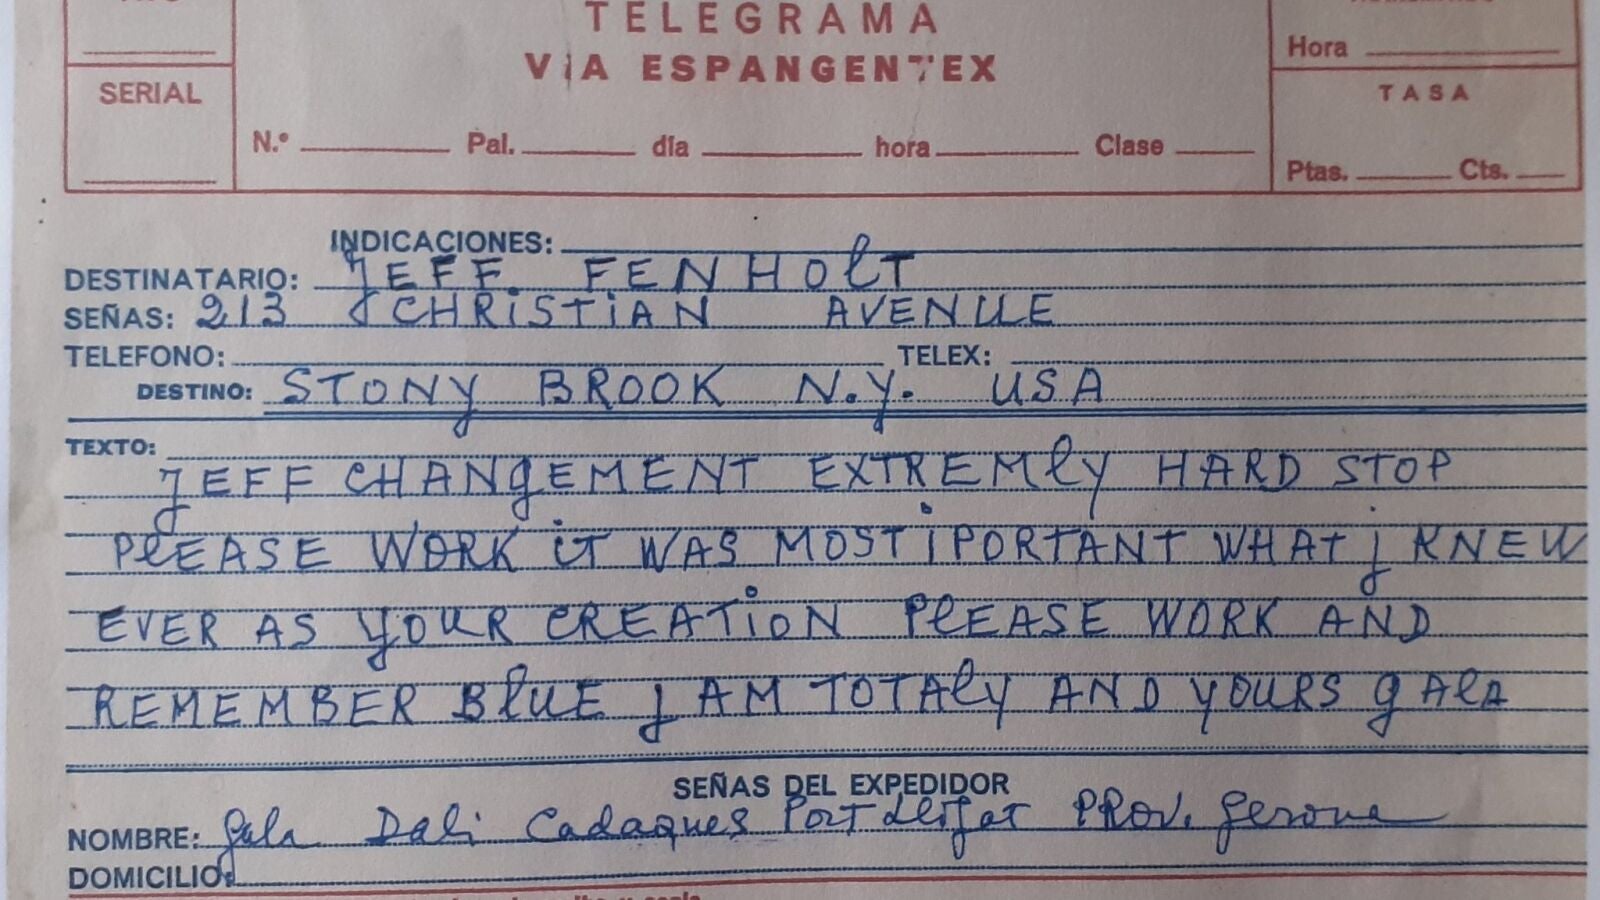 TELEGRAMA
VIA ESPANGENTEX
Hora
SERIAL
TASA
N.º Pal. día hora Clase
Ptas. Cts.
INDICACIONES:
DESTINATARIO: JEFF. FENHOLT
SEÑAS: 213 CHRISTIAN AVENUE
TELEFONO: TELEX:
DESTINO: STONY BROOK N.Y. USA
TEXTO:
JEFF CHANGEMENT EXTREMLY HARD STOP
PLEASE WORK IT WAS MOST IPORTANT WHAT J KNEW
EVER AS YOUR CREATION PLEASE WORK AND
REMEMBER BLUE J AM TOTALY AND YOURS GALA
SEÑAS DEL EXPEDIDOR
NOMBRE: Gala Dali Cadaques Port dligat PROV. Gerona
DOMICILIO: